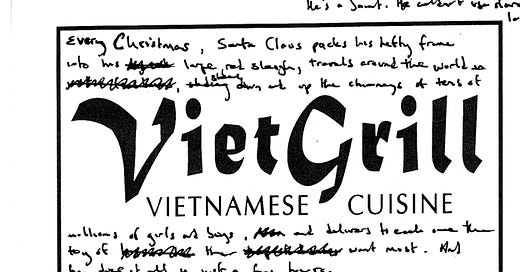 He's a Saint. He
Every Christmas, Santa Claus packs his hefty frame
into his large, red sleigh, travels around the world
sliding
down and up the chimneys of tens of
VietGrill
VIETNAMESE CUISINE
millions of girls and boys, and delivers to each one the
toy of their want most. And
he does it all in just a few hours.